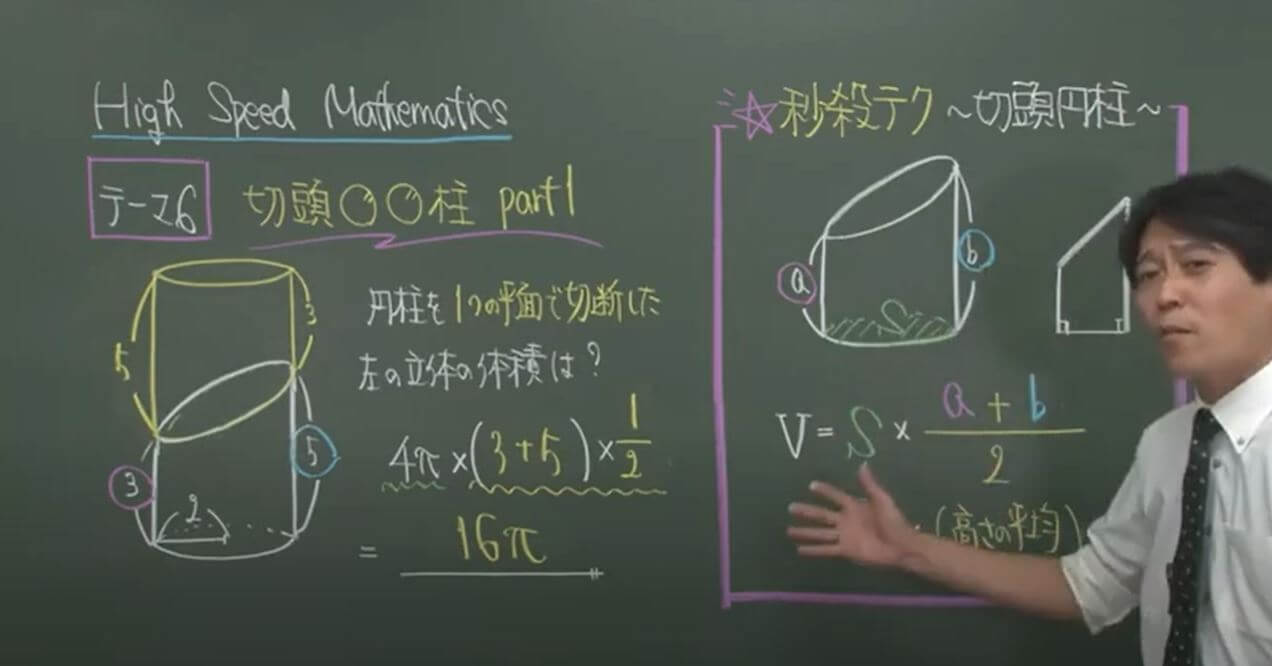 High Speed Mathematics
テーマ6 切頭○○柱 part1
円柱を1つの平面で切断した
左の立体の体積は？
5
3
3
5
2
4π×(3+5)×1/2
= 16π
☆秒殺テク～切頭円柱～
a
b
S
V=S×(a+b)/2
(高さの平均)